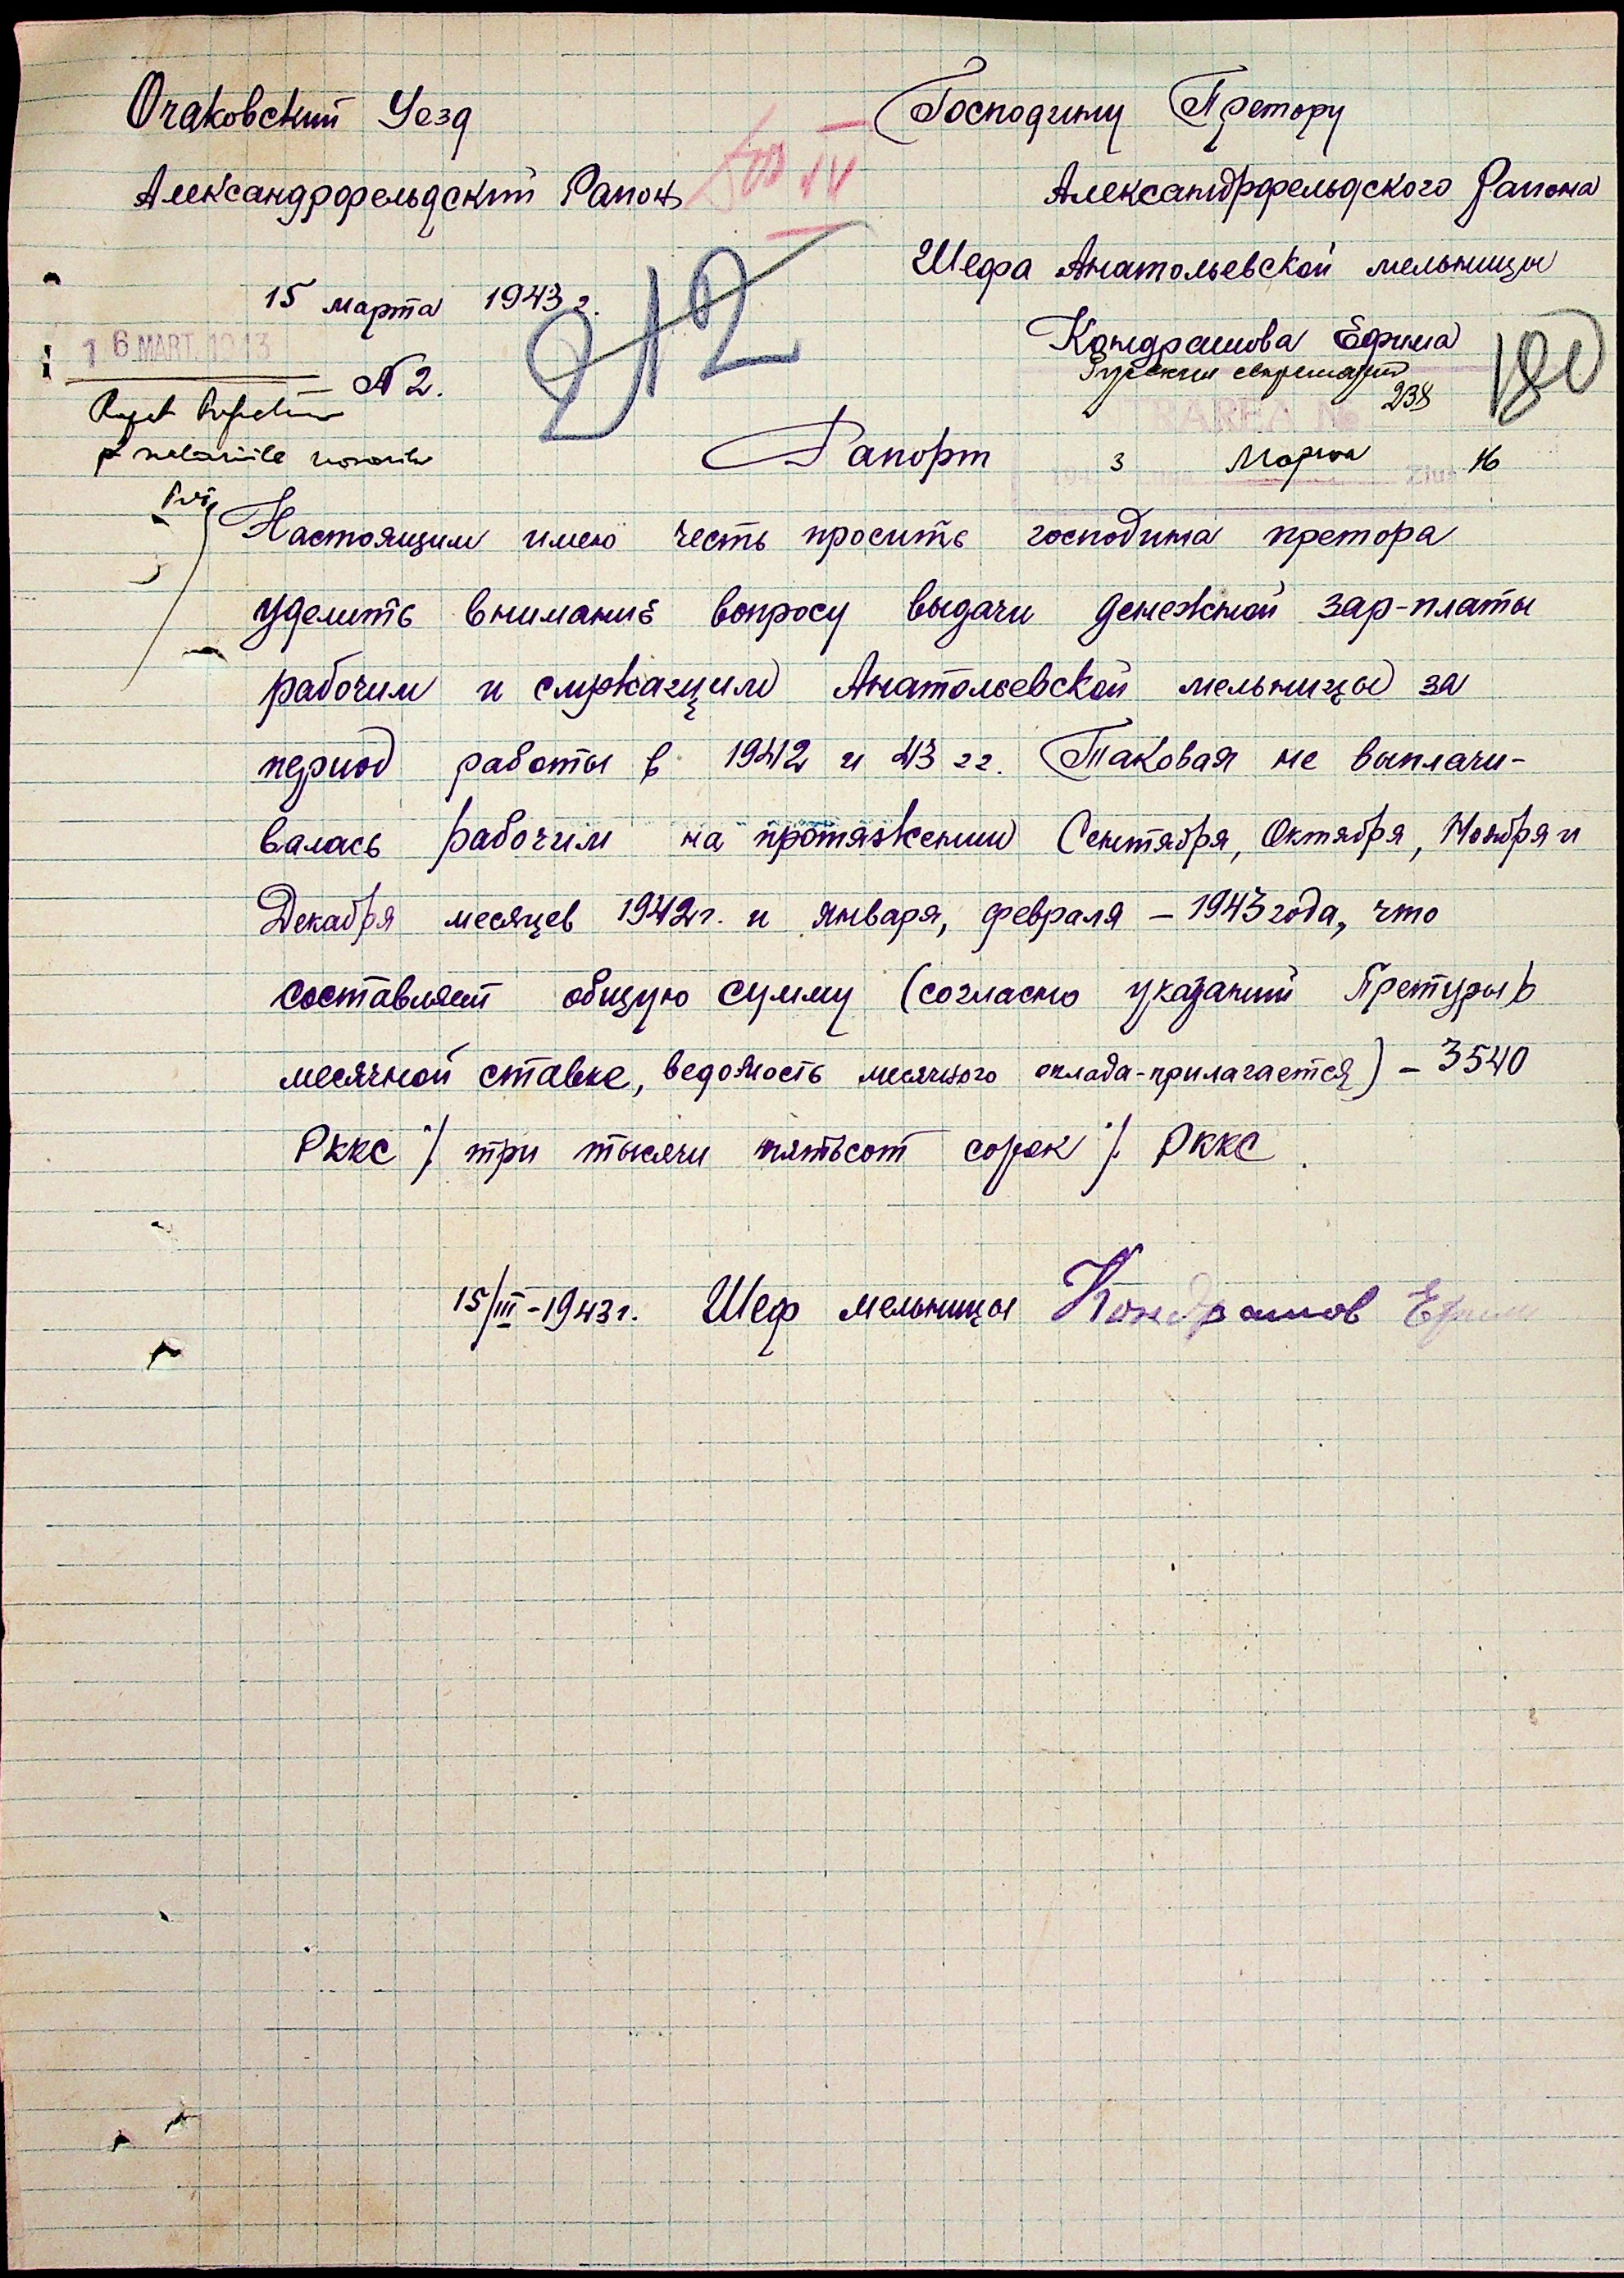 Очаковский Уезд
Александрфельдский Раион
15 марта 1943 г.
16 MART. 1943
№ 2.
212
Господину Претору
Александрфельдского Раиона
Шефа Анатольевской мельницы
Кондрашова Ефима
238
180
RAREA №
Рапорт
3 Марта 16
Настоящим имею честь просить господина претора
уделить внимание вопросу выдачи денежной зар-платы
рабочим и служащим Анатольевской мельницы за
период работы в 1942 и 43 гг. Таковая не выплачи-
валась рабочим на протяжении Сентября, Октября, Ноября и
Декабря месяцев 1942г. и января, февраля – 1943 года, что
составляет общую сумму (согласно указаний Претуры о
месячной ставке, ведомость месячного оклада-прилагается) – 3540
РККС ./. три тысячи пятьсот сорок ./. РККС.
15/III-1943г. Шеф мельницы Кондрашов Ефим